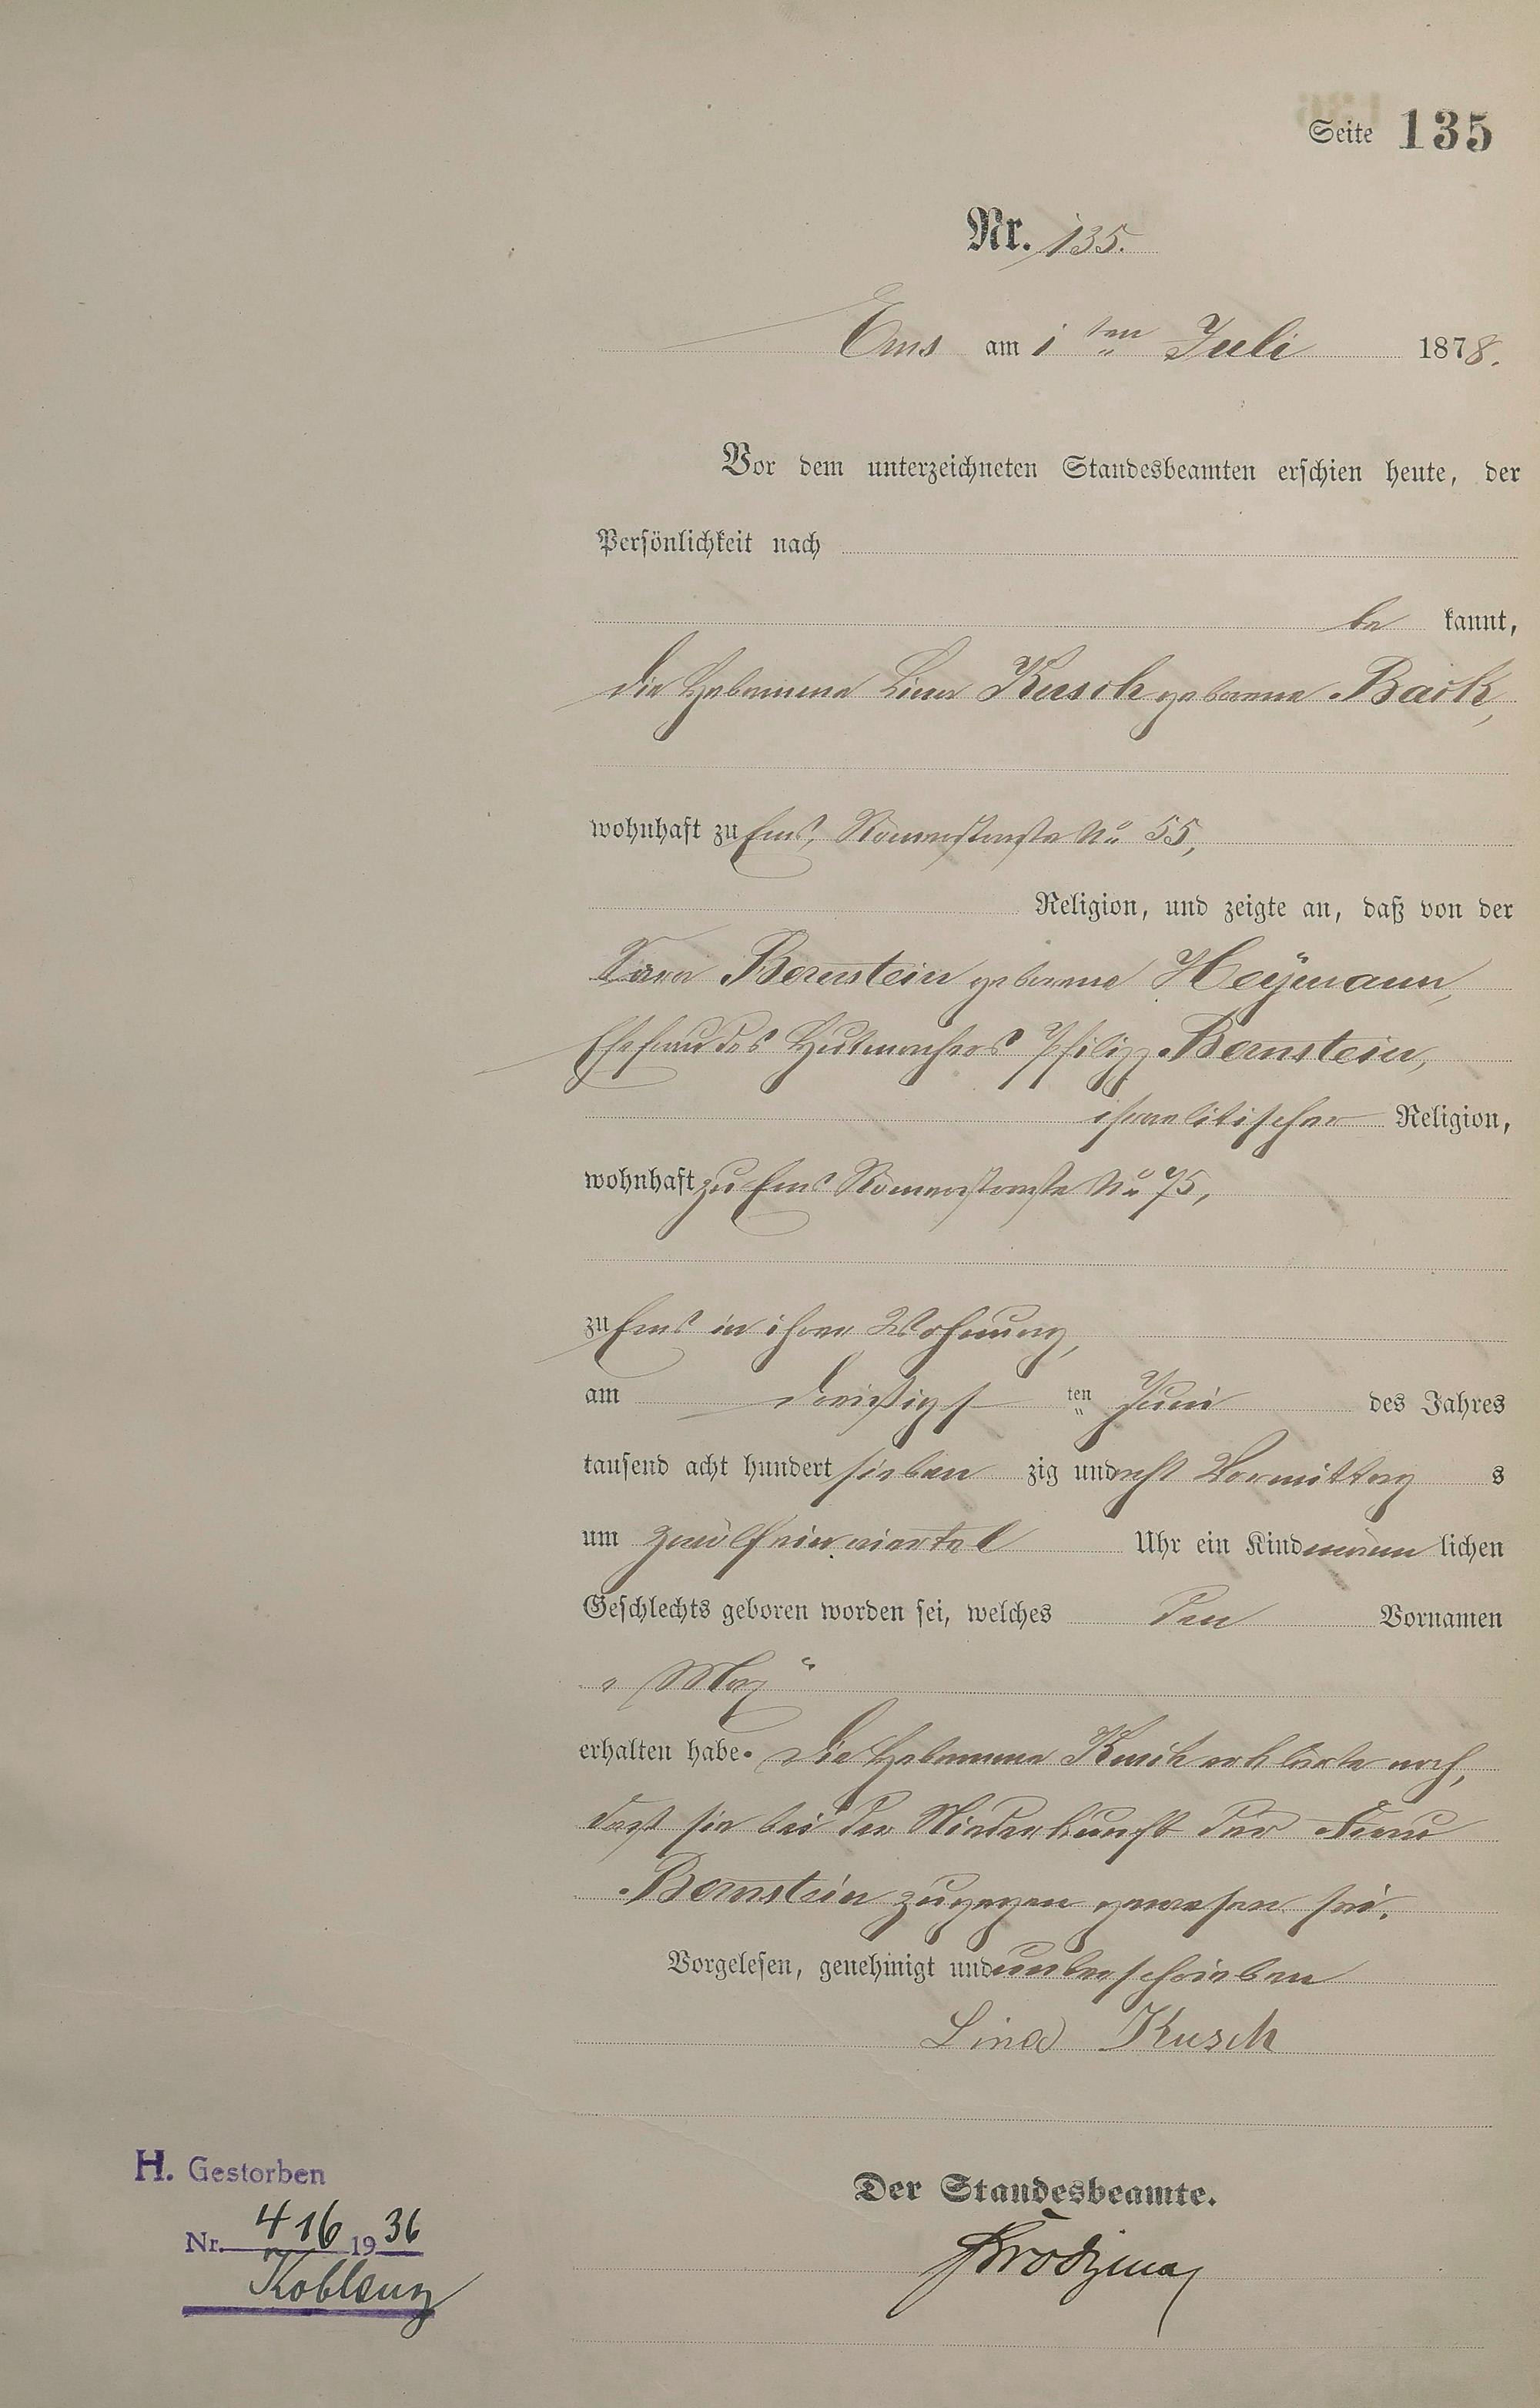 Seite 135
Nr. 135.
Ems am 1ten Juli 1878.
Vor dem unterzeichneten Standesbeamten erschien heute, der
Persönlichkeit nach
be kannt,
die Hebamme Lina Kusch geborene Back,
wohnhaft zu Ems, Römerstraße No 55,
Religion, und zeigte an, daß von der
Sara Bernstein geborene Heÿmann,
Ehefrau des Hutmachers Philipp Bernstein,
israelitischer Religion,
wohnhaft zu Ems Römerstraße No 75,
zu Ems in ihrer Wohnung,
am dreißigst ten Juni des Jahres
tausend acht hundert sieben zig und acht Vormittag s
um zwölfeinviertel Uhr ein Kind männ lichen
Geschlechts geboren worden sei, welches den Vornamen
„Max“
erhalten habe. Die Hebamme Kusch erklärte noch,
daß sie bei der Niederkunft der Frau
Bernstein zugegen gewesen sei.
Vorgelesen, genehmigt und unterschrieben
Lina Kusch
Der Standesbeamte.
H. Gestorben
Nr. 416 1936
Koblenz